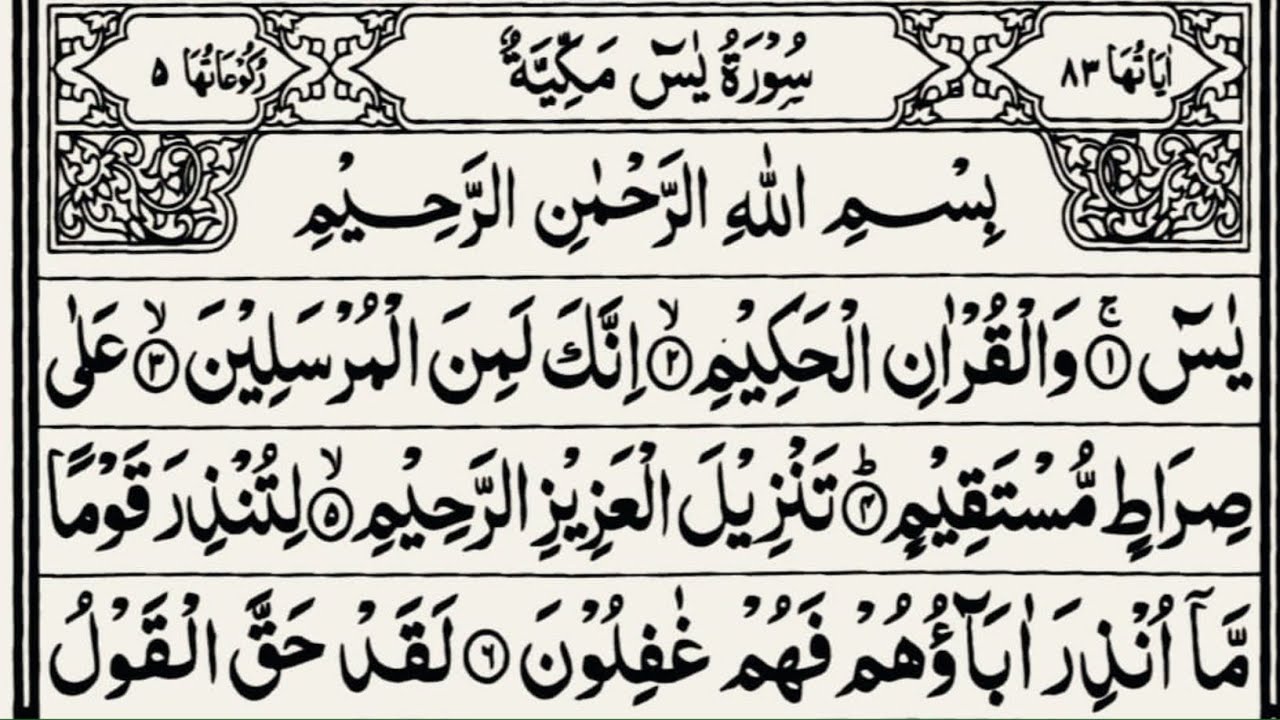 اٰيَاتُهَا ٨٣ سُوْرَةُ يٰسٓ مَكِّيَّةٌ رُكُوْعَاتُهَا ۵
بِسْمِ اللّٰهِ الرَّحْمٰنِ الرَّحِيْمِ
يٰسٓ ۚ﴿۱﴾ وَالْقُرْاٰنِ الْحَكِيْمِ ۙ﴿۲﴾ اِنَّكَ لَمِنَ الْمُرْسَلِيْنَ ۙ﴿۳﴾ عَلٰى
صِرَاطٍ مُّسْتَقِيْمٍ ؕ﴿۴﴾ تَنْزِيْلَ الْعَزِيْزِ الرَّحِيْمِ ۙ﴿۵﴾ لِتُنْذِرَ قَوْمًا
مَّاۤ اُنْذِرَ اٰبَآؤُهُمْ فَهُمْ غٰفِلُوْنَ ﴿۶﴾ لَقَدْ حَقَّ الْقَوْلُ